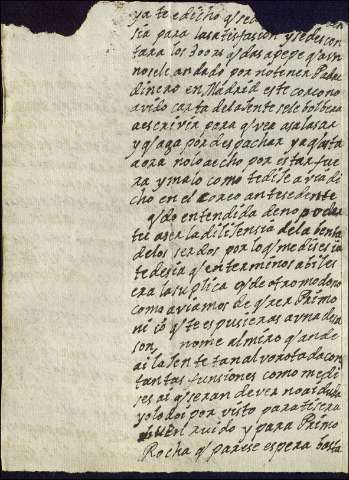 ya te e dicho q se
sia para la satisfacion y se descon
tara los 300 rs q das a pepe q aun
no se le an dado por no tener Padre
dinero en Madrid este coreo no
a vido carta de la ente se le bolbera
a escrivir para q vea a
y q aga por despachar y a gasta
aora no lo a echo por estar fue
ra y malo como te dise avia di
cho en el coreo antesedente
quedo entendida de no poder
tu aser la dilijensia de la benta
de los serdos por lo q me dises ia
te desia q en terminos abiles
era la suplica q de otro modo no
como aviamos de q rer Primo
ni io q te espusieras a una desa
son, no me almiro q ande
ai la jente tan alvorotada con
tantas funsiones como me di
ses ai q seran de ver no ai duda
yo lo doi por visto para ti sera
el ruido y para Primo
Rocha q parese espera basta